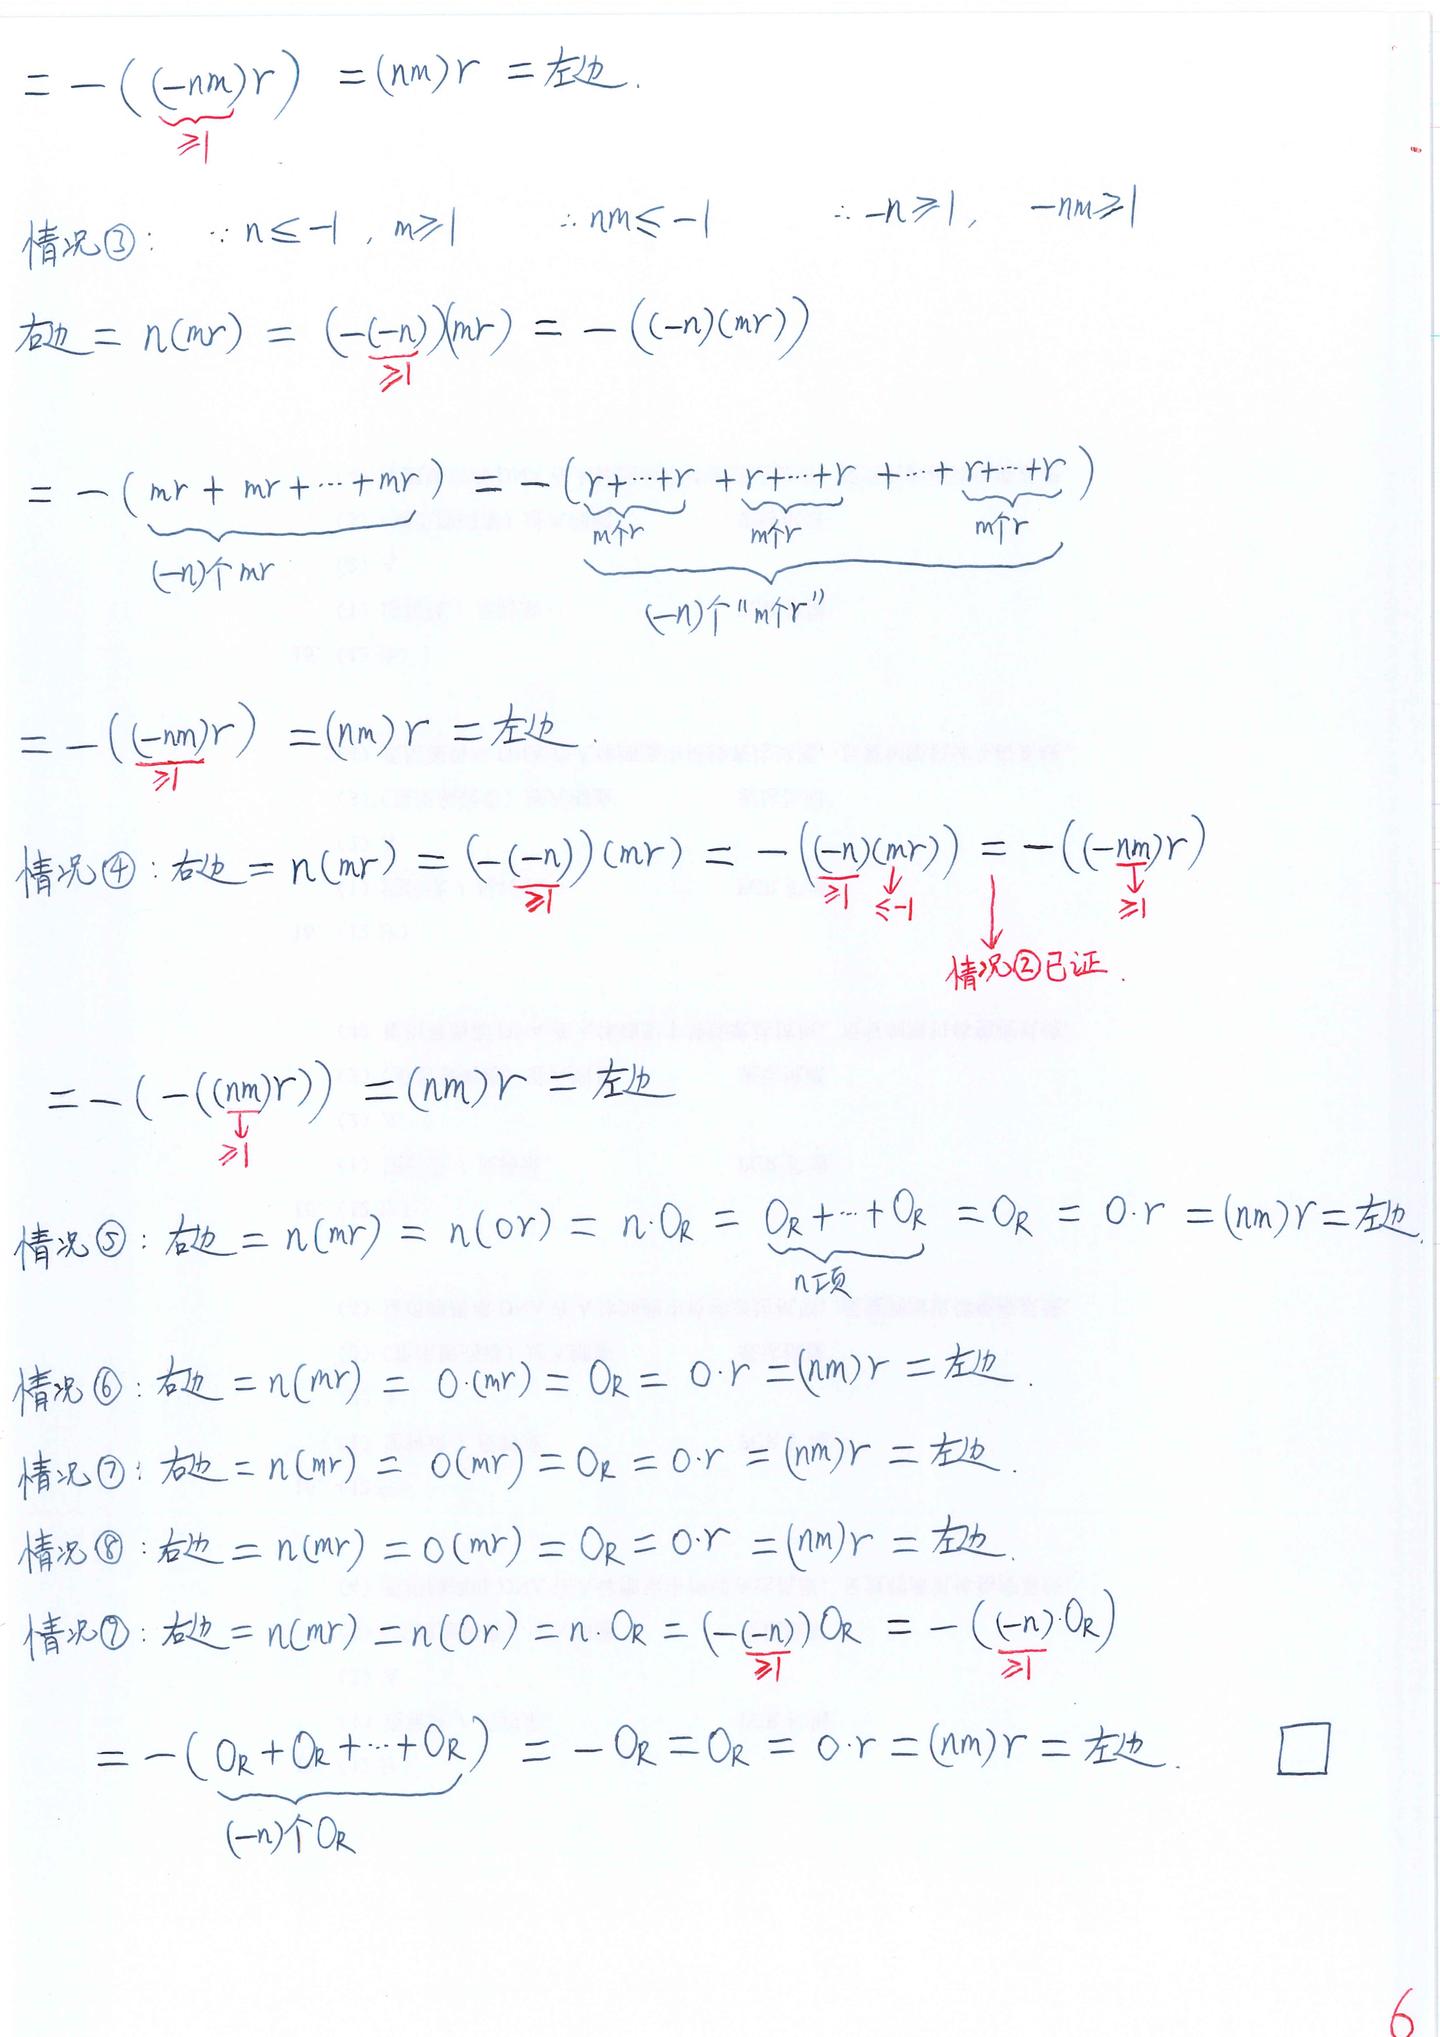 = -((-nm)r) = (nm)r = 左边.
≥1
情况③: ∵ n≤-1, m≥1 ∴ nm≤-1 ∴ -n≥1, -nm≥1
右边 = n(mr) = (-(-n))(mr) = -((-n)(mr))
≥1
= -(mr + mr + ··· + mr) = -(r+···+r + r+···+r + ··· + r+···+r)
m个r m个r m个r
(-n)个mr
(-n)个"m个r"
= -((-nm)r) = (nm)r = 左边.
≥1
情况④: 右边 = n(mr) = (-(-n))(mr) = -((-n)(mr)) = -((-nm)r)
≥1 ≥1 ≤-1 ≥1
情况②已证.
= -(-((nm)r)) = (nm)r = 左边
≥1
情况⑤: 右边 = n(mr) = n(0r) = n·0R = 0R+···+0R = 0R = 0·r = (nm)r = 左边.
n项
情况⑥: 右边 = n(mr) = 0·(mr) = 0R = 0·r = (nm)r = 左边.
情况⑦: 右边 = n(mr) = 0(mr) = 0R = 0·r = (nm)r = 左边.
情况⑧: 右边 = n(mr) = 0(mr) = 0R = 0·r = (nm)r = 左边.
情况⑦: 右边 = n(mr) = n(0r) = n·0R = (-(-n))0R = -((-n)·0R)
≥1 ≥1
= -(0R+0R+···+0R) = -0R = 0R = 0·r = (nm)r = 左边. □
(-n)个0R
6